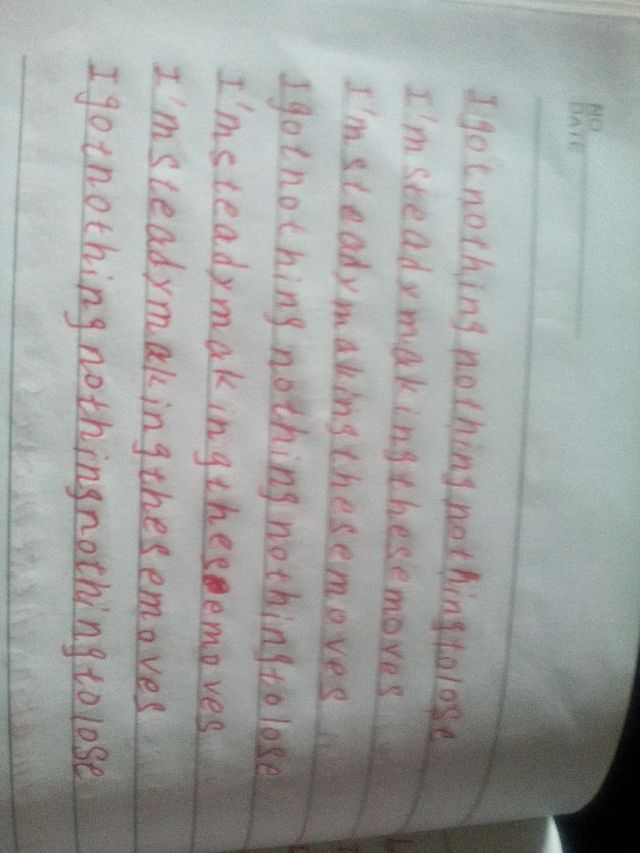 NO.
DATE
I got nothing nothing nothing to lose
I'm steady making these moves
I'm steady making these moves
I got nothing nothing nothing to lose
I'm steady making these moves
I'm steady making these moves
I got nothing nothing nothing to lose